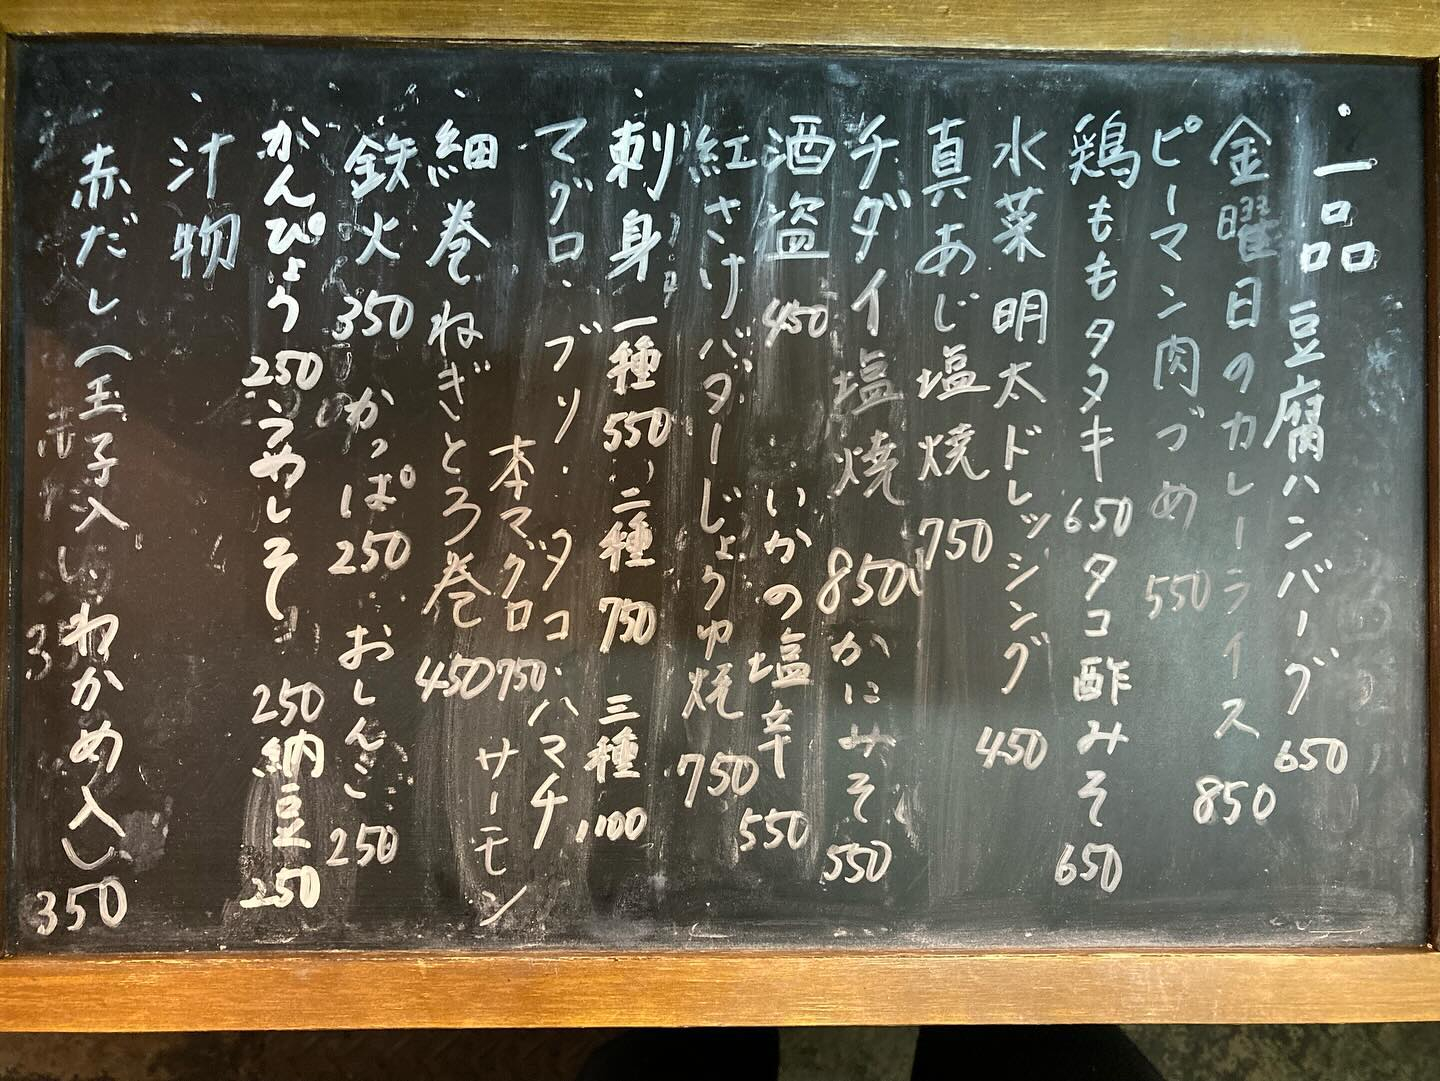 ・一品 豆腐ハンバーグ 650
金曜日のカレーライス 850
ピーマン肉づめ 550
鶏ももタタキ 650 タコ酢みそ 650
水菜 明太ドレッシング 450
真あじ塩焼 750
チダイ塩焼 850 かにみそ 550
酒盗 450 いかの塩辛 550
紅さけバターじょうゆ焼 750
・刺身 一種 550、二種 750 三種 1,100
マグロ・ブリ・タコ・ハマチ
本マグロ 750 サーモン
・細巻 ねぎとろ巻 450
鉄火 350 かっぱ 250 おしんこ 250
かんぴょう 250 うめしそ 250 納豆 250
・汁物
赤だし(玉子入り、わかめ入り) 350